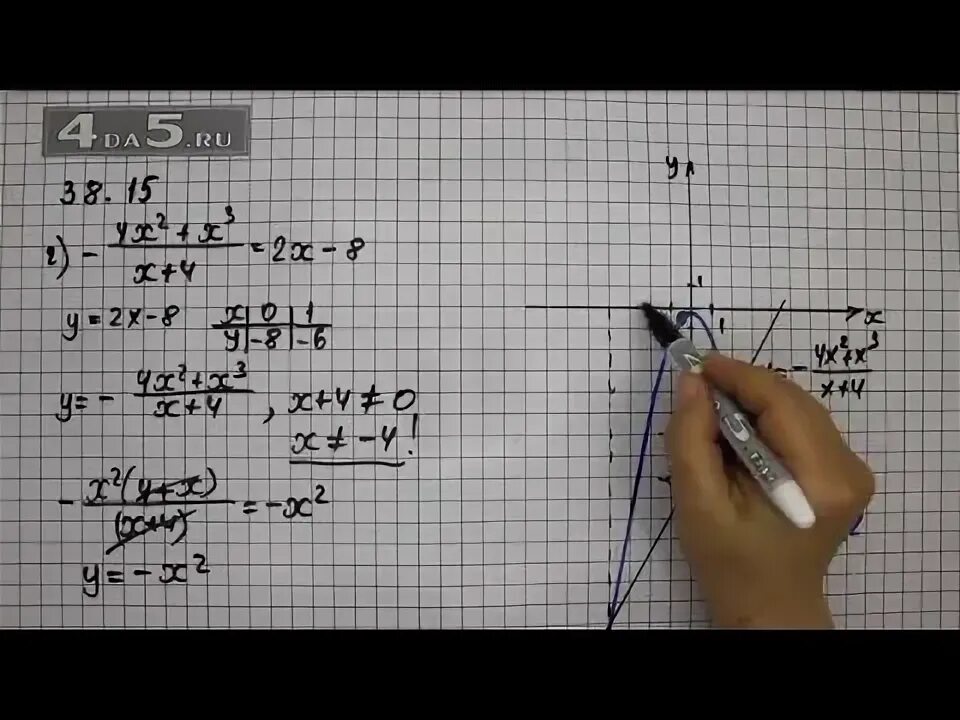 4DA5.RU
38.15
г) - 4x² + x³ / x+4 = 2x - 8
y = 2x - 8
x | 0 | 1
y | -8 | -6
y = - 4x² + x³ / x+4 , x+4 ≠ 0
x ≠ -4 !
- x²(4+x) / (x+4) = -x²
y = -x²
y
1
x
1
= - 4x² + x³ / x+4